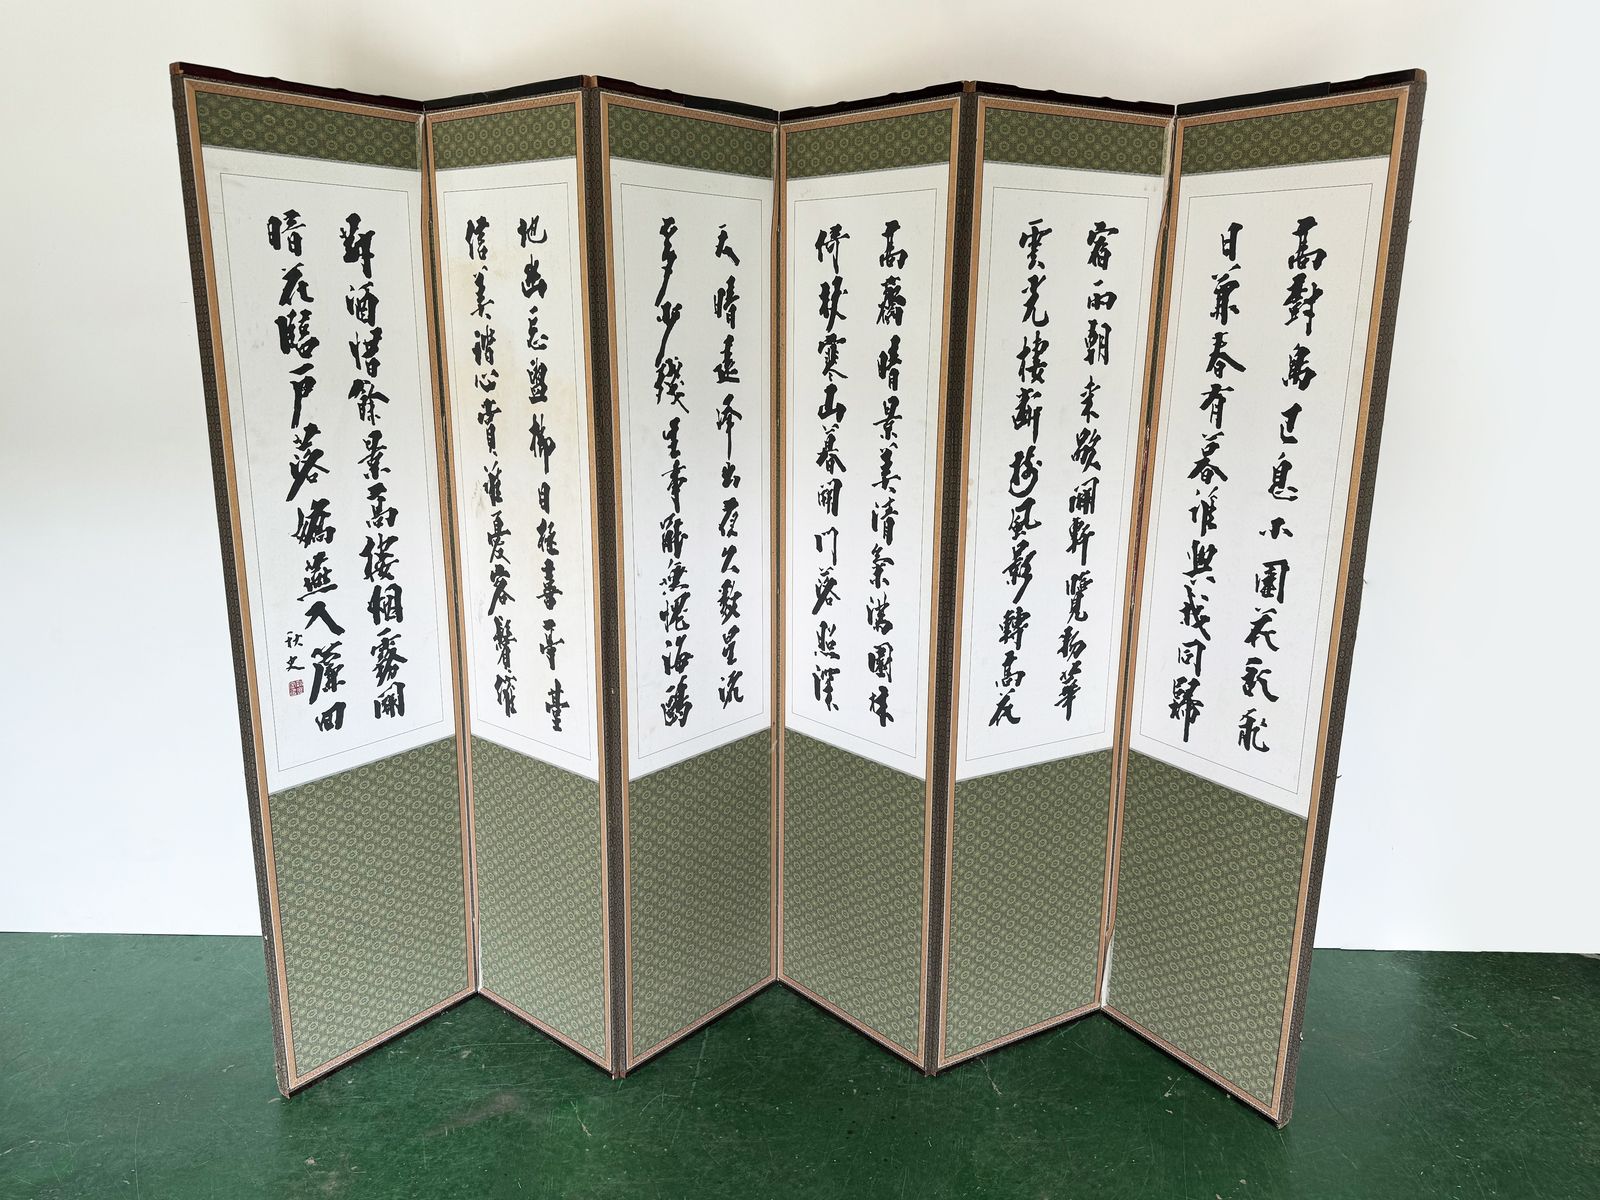 高對鳥已息小園花亂飛
日兼春有暮誰與我同歸
宿雨朝來歇開軒覽物華
雲光棲斷樹風影轉高花
高齋晴景美清氣滿園林
倚杖寒山暮開門落照深
天晴遠峯出夜久數星沈
多少殘生事能無愧海鷗
地幽忘盥櫛目極喜亭臺
信美諧心賞誰憂容鬢催
對酒惜餘景高樓烟霧開
晴花臨戶落嬌燕入簾回
秋史